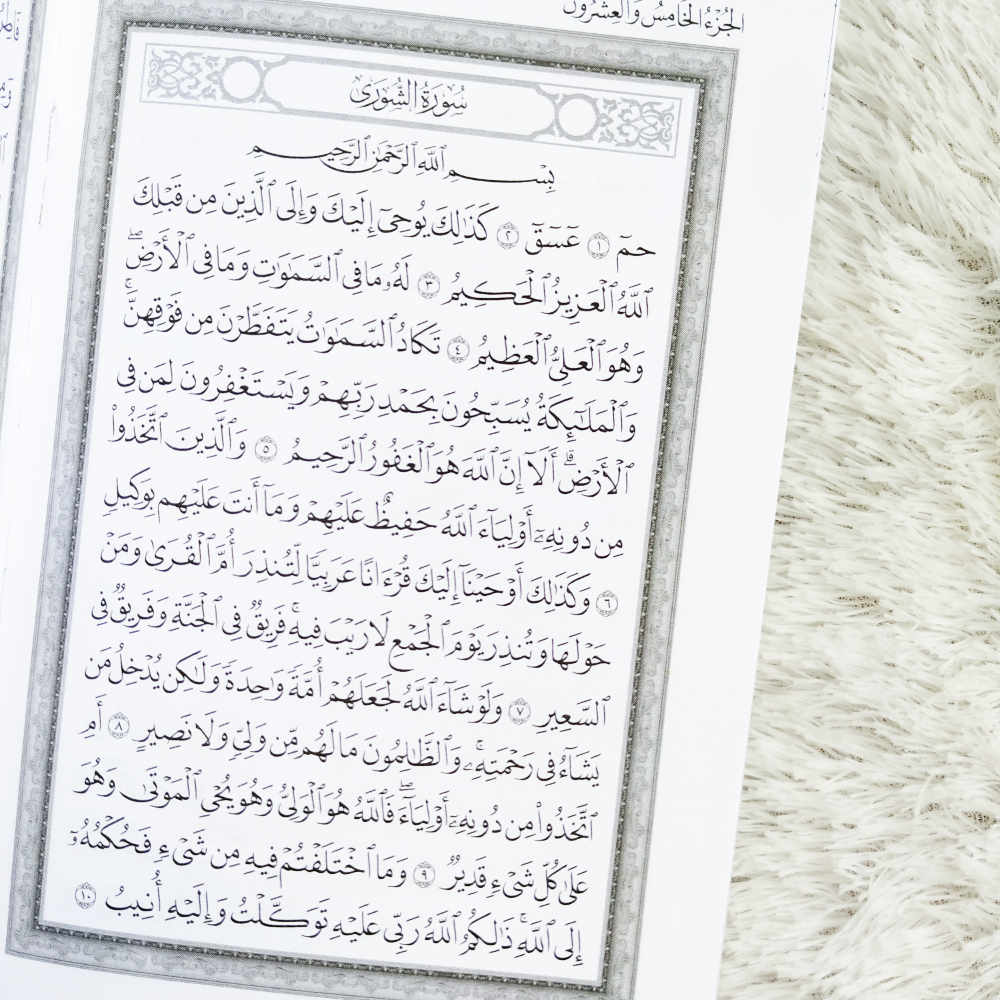 الجُزْءُ الخَامِسُ وَالعِشْرُونَ
سُورَةُ الشُّورَىٰ
بِسْمِ ٱللَّهِ ٱلرَّحْمَٰنِ ٱلرَّحِيمِ
حمٓ ١ عٓسٓقٓ ٢ كَذَٰلِكَ يُوحِىٓ إِلَيْكَ وَإِلَى ٱلَّذِينَ مِن قَبْلِكَ
ٱللَّهُ ٱلْعَزِيزُ ٱلْحَكِيمُ ٣ لَهُۥ مَا فِى ٱلسَّمَٰوَٰتِ وَمَا فِى ٱلْأَرْضِۖ
وَهُوَ ٱلْعَلِىُّ ٱلْعَظِيمُ ٤ تَكَادُ ٱلسَّمَٰوَٰتُ يَتَفَطَّرْنَ مِن فَوْقِهِنَّۚ
وَٱلْمَلَٰٓئِكَةُ يُسَبِّحُونَ بِحَمْدِ رَبِّهِمْ وَيَسْتَغْفِرُونَ لِمَن فِى
ٱلْأَرْضِۗ أَلَآ إِنَّ ٱللَّهَ هُوَ ٱلْغَفُورُ ٱلرَّحِيمُ ٥ وَٱلَّذِينَ ٱتَّخَذُوا۟
مِن دُونِهِۦٓ أَوْلِيَآءَ ٱللَّهُ حَفِيظٌ عَلَيْهِمْ وَمَآ أَنتَ عَلَيْهِم بِوَكِيلٍ
٦ وَكَذَٰلِكَ أَوْحَيْنَآ إِلَيْكَ قُرْءَانًا عَرَبِيًّا لِّتُنذِرَ أُمَّ ٱلْقُرَىٰ وَمَنْ
حَوْلَهَا وَتُنذِرَ يَوْمَ ٱلْجَمْعِ لَا رَيْبَ فِيهِۚ فَرِيقٌ فِى ٱلْجَنَّةِ وَفَرِيقٌ فِى
ٱلسَّعِيرِ ٧ وَلَوْ شَآءَ ٱللَّهُ لَجَعَلَهُمْ أُمَّةً وَٰحِدَةً وَلَٰكِن يُدْخِلُ مَن
يَشَآءُ فِى رَحْمَتِهِۦۚ وَٱلظَّٰلِمُونَ مَا لَهُم مِّن وَلِىٍّ وَلَا نَصِيرٍ ٨ أَمِ
ٱتَّخَذُوا۟ مِن دُونِهِۦٓ أَوْلِيَآءَۖ فَٱللَّهُ هُوَ ٱلْوَلِىُّ وَهُوَ يُحْىِ ٱلْمَوْتَىٰ وَهُوَ
عَلَىٰ كُلِّ شَىْءٍ قَدِيرٌ ٩ وَمَا ٱخْتَلَفْتُمْ فِيهِ مِن شَىْءٍ فَحُكْمُهُۥٓ
إِلَى ٱللَّهِۚ ذَٰلِكُمُ ٱللَّهُ رَبِّى عَلَيْهِ تَوَكَّلْتُ وَإِلَيْهِ أُنِيبُ ١٠